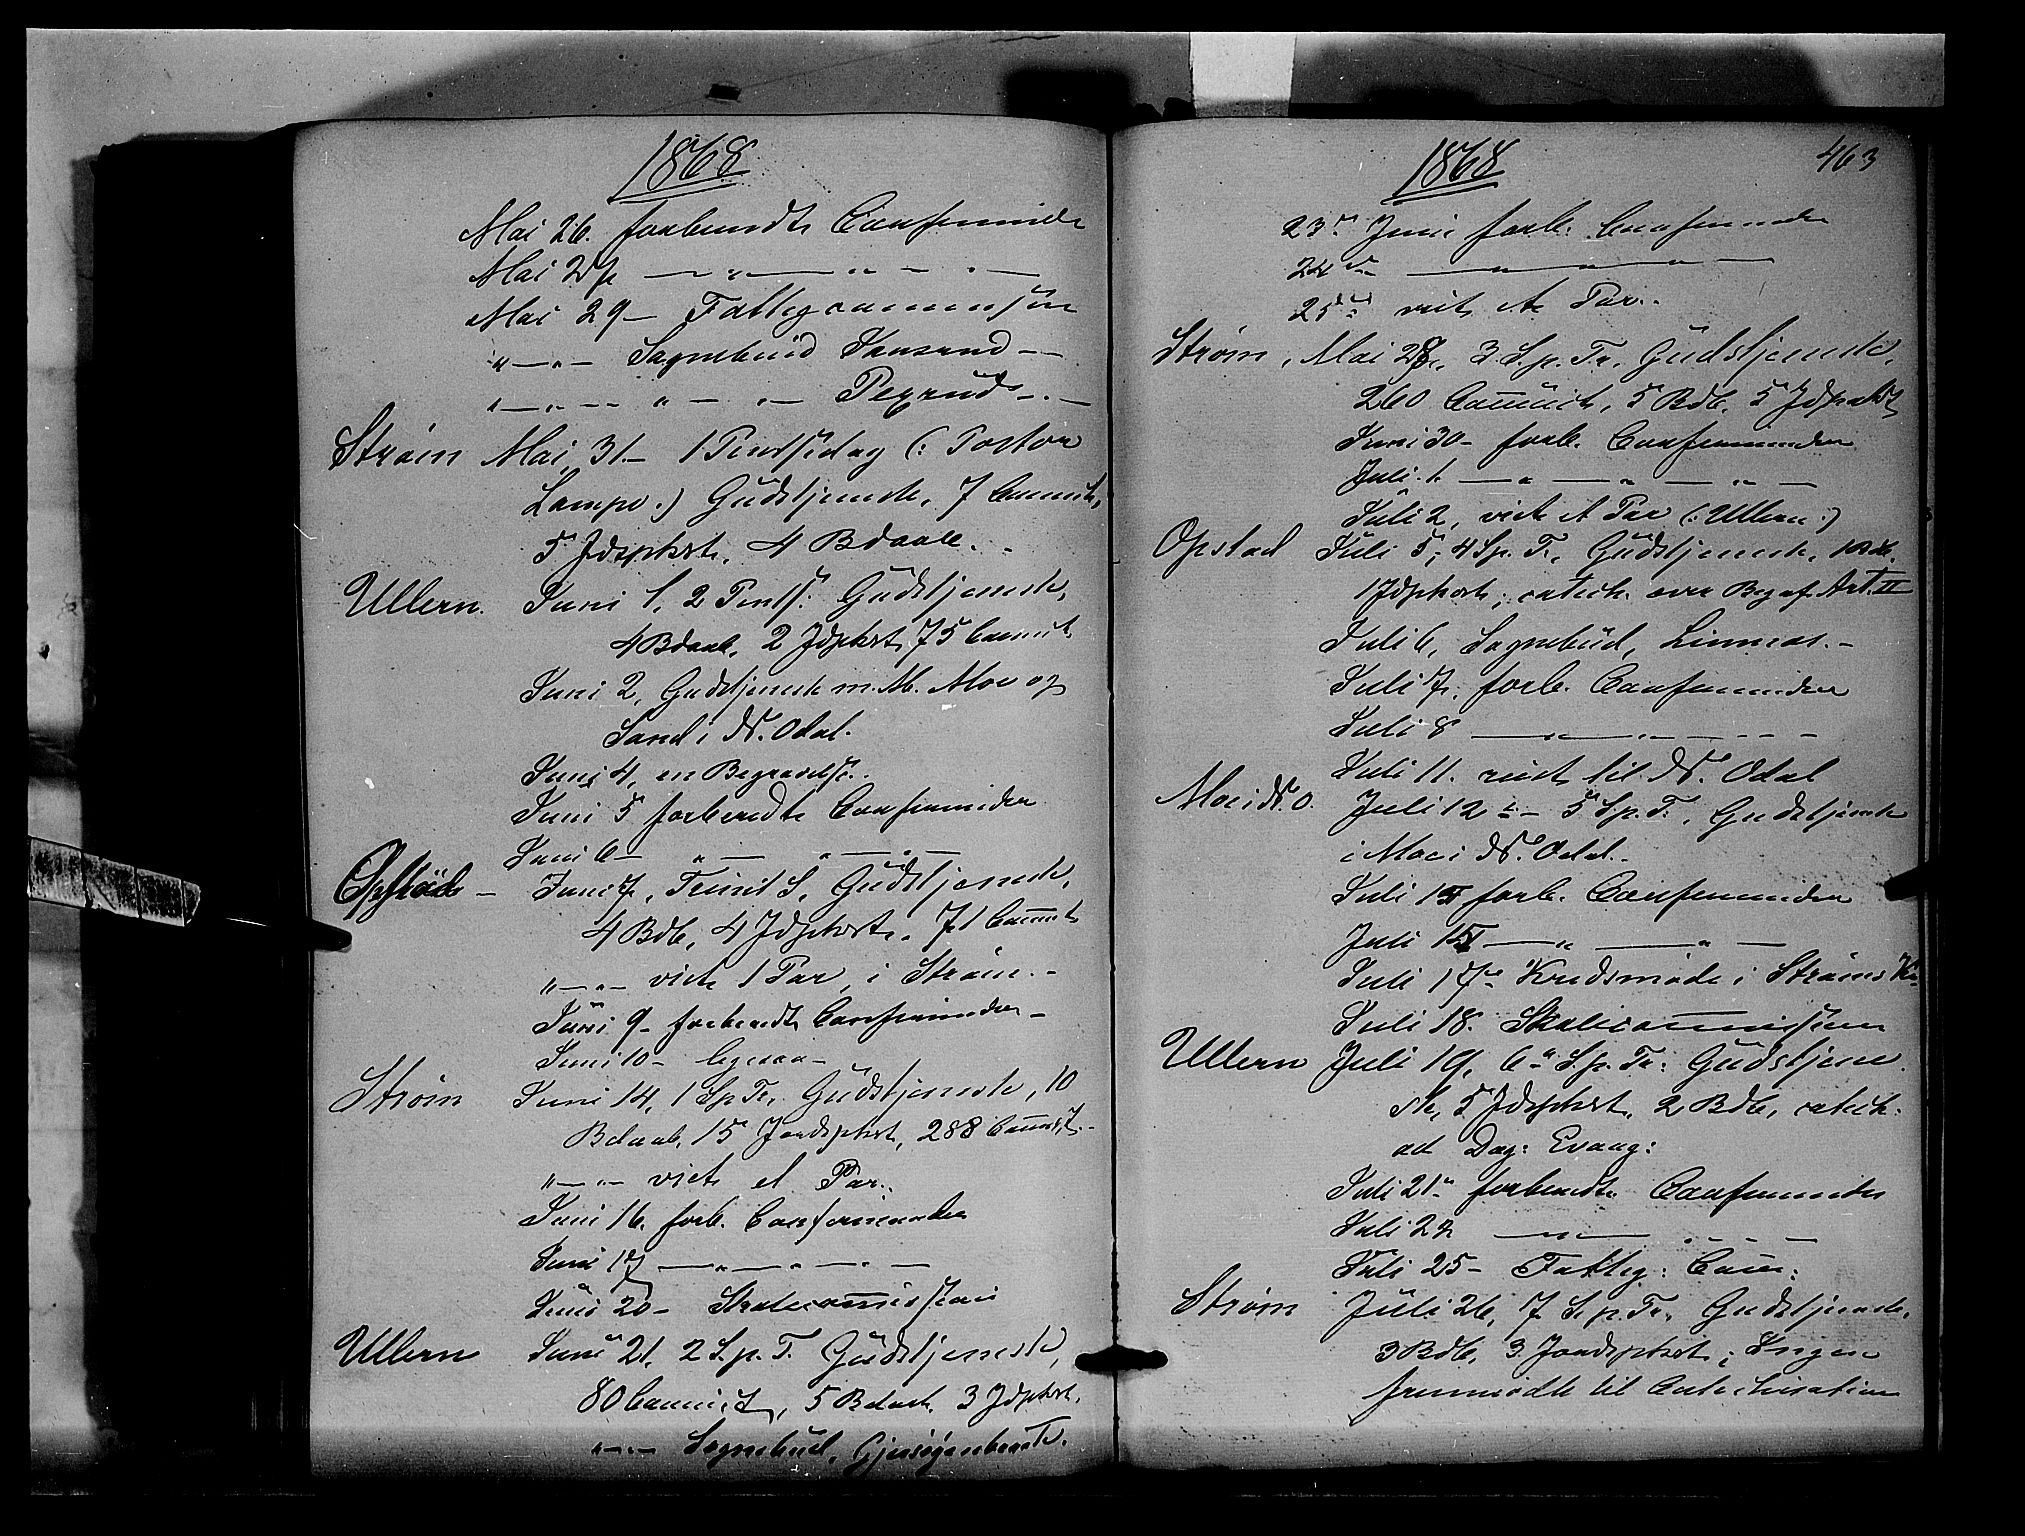 1868
Mai 26. forberedte Confirmander
Mai 27 — " — " — " —
Mai 29 — Fattigcommission
" — " — Sognebud
" — " — " — " — Pexrud —
Strøm Mai 31. — 1 Pintsedag (: Pastor
Lampe :) Gudstjeneste, 7 Commit,
5 Jdspkst, 4 Bdaab.
Ullern. Juni 1, 2 Pints. Gudstjeneste,
4 Bdaab, 2 Jdspkst, 75 Commit
Juni 2, Gudstjeneste m. M. Moe og
Sand i N. Odal.
Juni 4, en Begravelse.
Juni 5 forberedte Confirmander
Juni 6 — " — " — " —
Opstad — Juni 7, Trinit S, Gudstjeneste,
4 Bdb, 4 Jdspkst. 71 Commit
" — " — viet 1 Par i Strøm. —
Juni 9 — forberedte Confirmander —
Juni 10 — ligesaa —
Strøm Juni 14, 1 S p Tr, Gudstjeneste, 10
Bdaab, 15 Jordspkst, 288 Commit. —
" — " — viet et Par.
Juni 16. forb. Confirmander
Juni 17 — " — " — " —
Juni 20 — Skolecommission
Ullern Juni 21, 2 S. p. T. Gudstjeneste,
80 Commit, 5 Bdaab. 3 Jdspkst.
" — " — Sognebud,
1868 463
23de Juni forb. Confirmander
24de — " — " — " —
25de viet et Par.
Strøm, Mai 28, 3 S. p. Tr, Gudstjeneste,
260 Commit, 5 Bdb. 5 Jdspkst
Juni 30 — forb. Confirmander
Juli 1. — " — " — " —
Juli 2, viet et Par (: Ullern :)
Opstad Juli 5, 4 S p. Tr, Gudstjeneste, 1 Bdb.
1 Jdspkst, catech. over Beg af Art. II
Juli 6, Sognebud, Linnæs. —
Juli 7, forb. Confirmander
Juli 8 — " — " — — —
Juli 11. reist til N. Odal
Moe i N. O. Juli 12te — 5 S p. Tr, Gudstjeneste
i Moe i N. Odal. —
Juli 14 forb. Confirmander
Juli 15 — " — " —
Juli 17de Kredsmøde i Strøms K.
Juli 18. Skolecommission
Ullern Juli 19, 6te S. p. Tr. Gudstjene
ste, 5 Jdspkst, 2 Bdb, catech.
ad Dag: Evang:
Juli 21de forberedte Confirmander
Juli 22 — " — " — —
Juli 25 — Fattig: Com:
Strøm Juli 26, 7 S. p. Tr, Gudstjeneste,
3 Bdb, 3 Jordspkst; Ingen
fremmødte til Catechisation